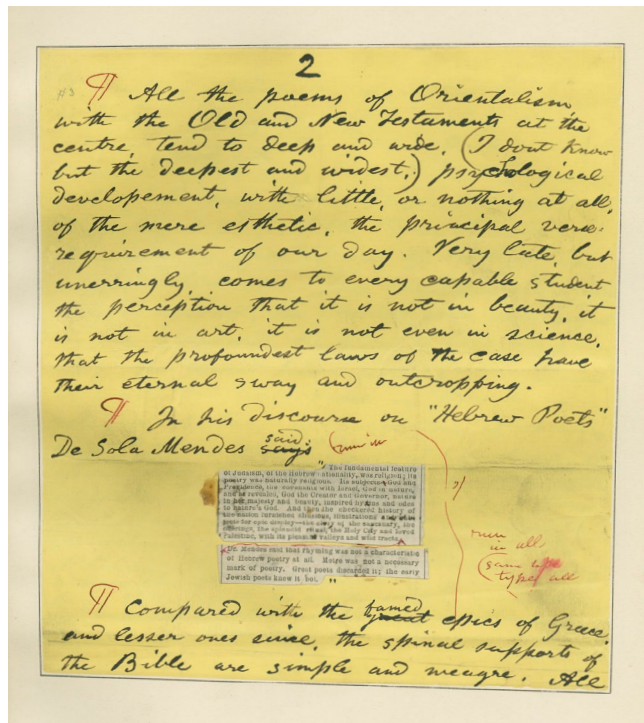 2
¶ All the poems of Orientalism,
with the Old and New Testaments at the
centre, tend to deep and wide, (I dont know
but the deepest and widest,) psychological
developement, with little, or nothing at all,
of the mere esthetic, the principal verse-
requirement of our day. Very late, but
unerringly, comes to every capable student
the perception that it is not in beauty, it
is not in art, it is not even in science,
that the profoundest laws of the case have
their eternal sway and outcropping.
¶ In his discourse on "Hebrew Poets"
De Sola Mendes says said: (run in
"The fundamental feature
of Judaism, of the Hebrew nationality, was religion; its
poetry was naturally religious. Its subjects, God and
Providence, the covenants with Israel, God in nature,
and as revealed, God the Creator and Governor, nature
in her majesty and beauty, inspired hymns and odes
to nature's God. And then the checkered history of the
nation furnished allusions, illustrations and
the sanctuary, the
offerings, the splendid ritual, the Holy City and loved
Palestine, with its pleasant valleys and wild tracts.
Dr. Mendes said that rhyming was not a characteristic
of Hebrew poetry at all. Metre was not a necessary
mark of poetry. Great poets discarded it; the early
Jewish poets knew it not."
run
in all
same
type all
¶ Compared with the great famed epics of Greece,
and lesser ones since, the spinal supports of
the Bible are simple and meagre. All